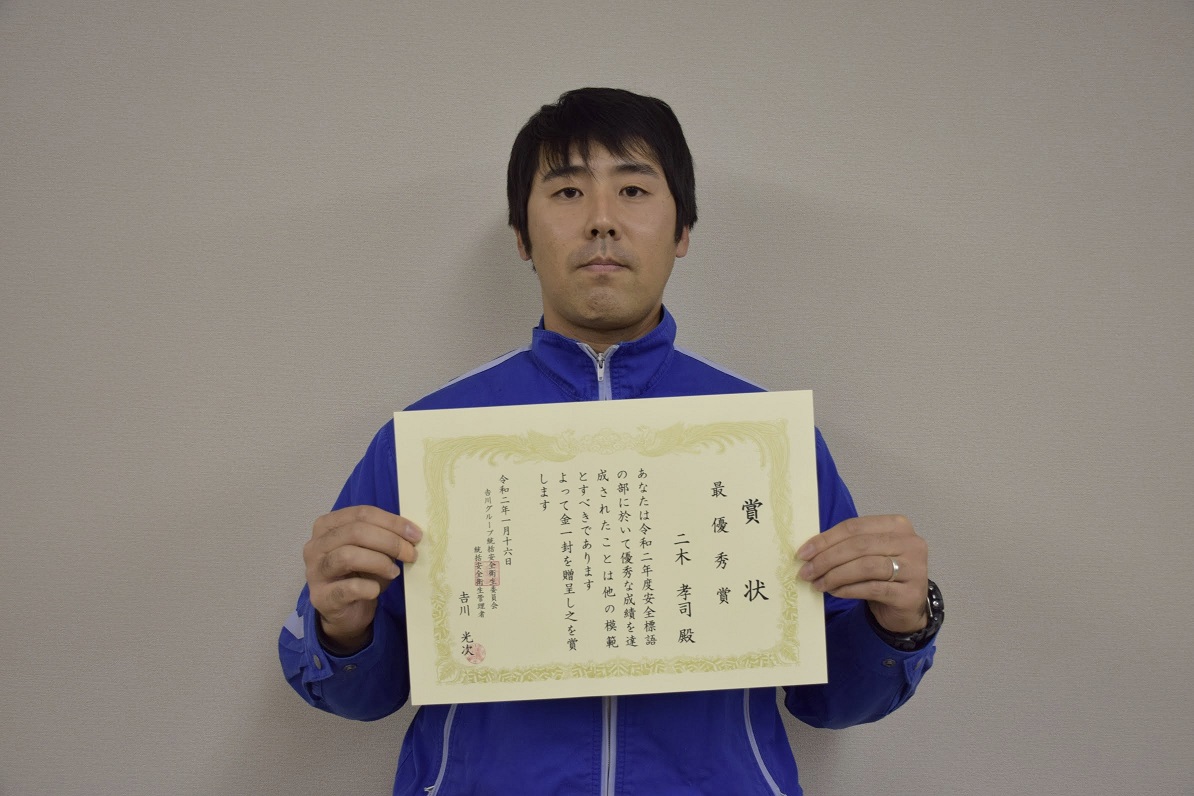 賞状
最優秀賞
二木 孝司 殿
あなたは令和二年度安全標語
の部に於いて優秀な成績を達
成されたことは他の模範
とすべきであります
よって金一封を贈呈し之を賞
します
令和二年一月十六日
𠮷川グループ統括安全衛生委員会
統括安全衛生管理者
𠮷川 光次